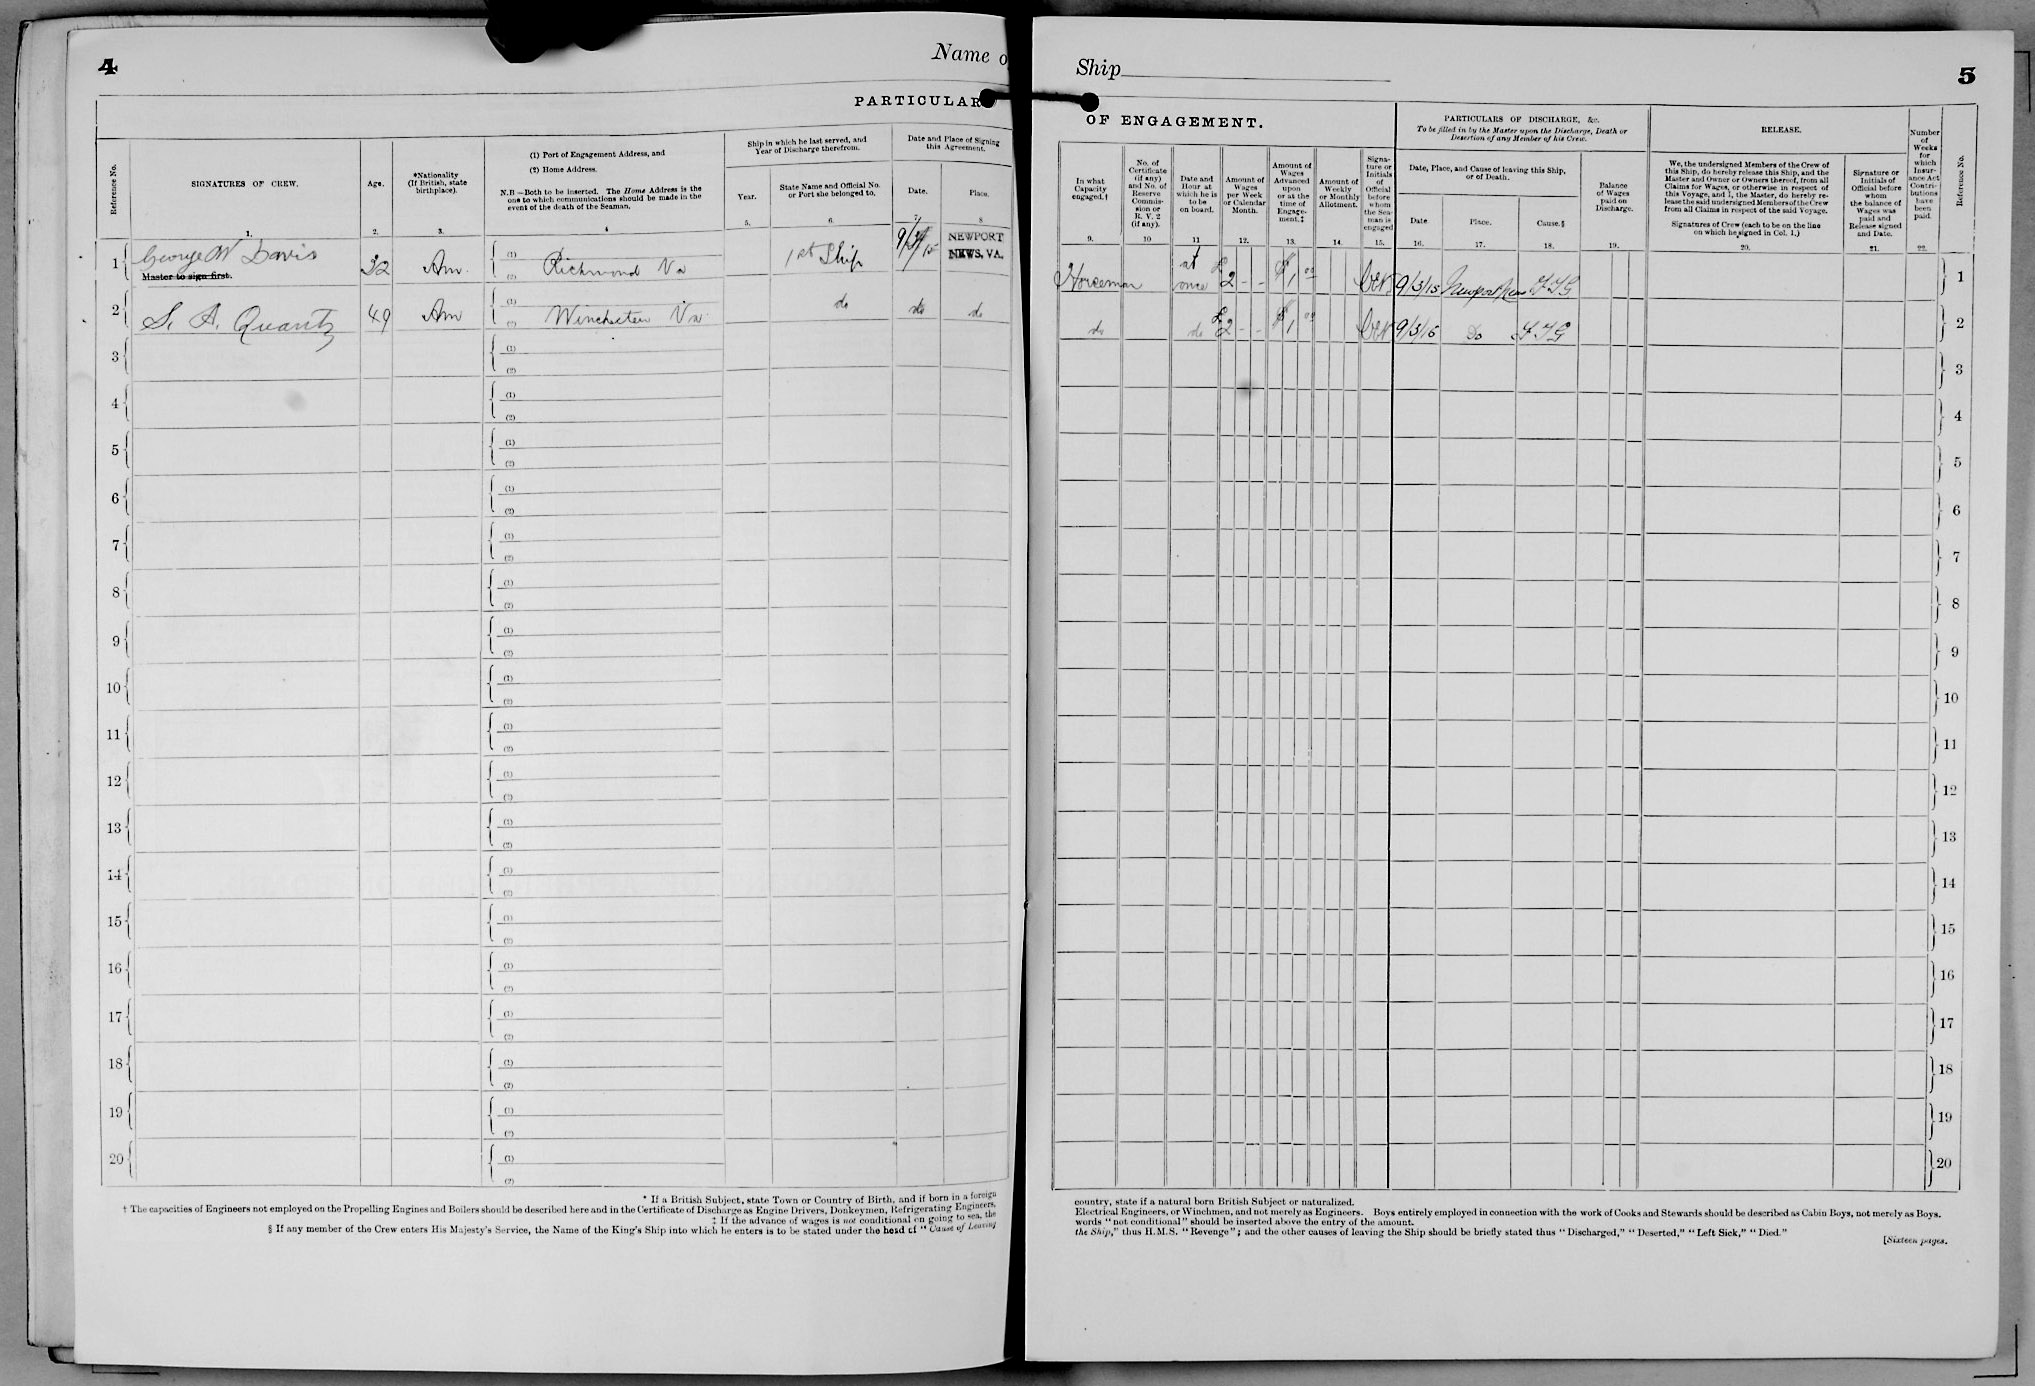 4
Name o
PARTICULAR
Reference No.
SIGNATURES OF CREW.
Age.
*Nationality
(If British, state
birthplace).
(1) Port of Engagement Address, and
(2) Home Address.
N.B—Both to be inserted. The Home Address is the
one to which communications should be made in the
event of the death of the Seaman.
Ship in which he last served, and
Year of Discharge therefrom.
Year.
State Name and Official No.
or Port she belonged to.
Date and Place of Signing
this Agreement.
Date.
Place.
1. 2. 3. 4 5. 6. 7. 8
1 George W Davis 32 Am. (1) Richmond Va 1st Ship NEWPORT
Master to sign first. (2) NEWS, VA.
2 S. A. Quantz 49 Am (1) Winchester Va. do do do
(2)
3 (1)
(2)
4 (1)
(2)
5 (1)
(2)
6 (1)
(2)
7 (1)
(2)
8 (1)
(2)
9 (1)
(2)
10 (1)
(2)
11 (1)
(2)
12 (1)
(2)
13 (1)
(2)
14 (1)
(2)
15 (1)
(2)
16 (1)
(2)
17 (1)
(2)
18 (1)
(2)
19 (1)
(2)
20 (1)
(2)
* If a British Subject, state Town or Country of Birth, and if born in a foreign
† The capacities of Engineers not employed on the Propelling Engines and Boilers should be described here and in the Certificate of Discharge as Engine Drivers, Donkeymen, Refrigerating Engineers,
‡ If the advance of wages is not conditional on going to sea, the
§ If any member of the Crew enters His Majesty's Service, the Name of the King's Ship into which he enters is to be stated under the head of "Cause of Leaving
Ship
5
OF ENGAGEMENT.
PARTICULARS OF DISCHARGE, &c.
To be filled in by the Master upon the Discharge, Death or
Desertion of any Member of his Crew.
RELEASE.
In what
Capacity
engaged.†
No. of
Certificate
(if any)
and No. of
Reserve
Commis-
sion or
R. V. 2
(if any).
Date and
Hour at
which he is
to be
on board.
Amount of
Wages
per Week
or Calendar
Month.
Amount of
Wages
Advanced
upon
or at the
time of
Engage-
ment.‡
Amount of
Weekly
or Monthly
Allotment.
Signa-
ture or
Initials
of
Official
before
whom
the Sea-
man is
engaged
Date, Place, and Cause of leaving this Ship,
or of Death.
Date
Place.
Cause.§
Balance
of Wages
paid on
Discharge.
We, the undersigned Members of the Crew of
this Ship, do hereby release this Ship, and the
Master and Owner or Owners thereof, from all
Claims for Wages, or otherwise in respect of
this Voyage, and I, the Master, do hereby re-
lease the said undersigned Members of the Crew
from all Claims in respect of the said Voyage.
Signatures of Crew (each to be on the line
on which he signed in Col. 1.)
Signature or
Initials of
Official before
whom
the balance of
Wages was
paid and
Release signed
and Date.
Number
of
Weeks
for
which
Insur-
ance Act
Contri-
butions
have
been
paid.
Reference No.
9. 10 11 12. 13. 14. 15. 16. 17. 18. 19. 20. 21. 22.
Horseman at once £2 - - $1 00 9/3/15 Newport News 1
do do £2 - - $1 00 9/3/15 Do 2
3
4
5
6
7
8
9
10
11
12
13
14
15
16
17
18
19
20
country, state if a natural born British Subject or naturalized.
Electrical Engineers, or Winchmen, and not merely as Engineers. Boys entirely employed in connection with the work of Cooks and Stewards should be described as Cabin Boys, not merely as Boys.
words "not conditional" should be inserted above the entry of the amount.
the Ship," thus H.M.S. "Revenge"; and the other causes of leaving the Ship should be briefly stated thus "Discharged," "Deserted," "Left Sick," "Died."
[Sixteen pages.